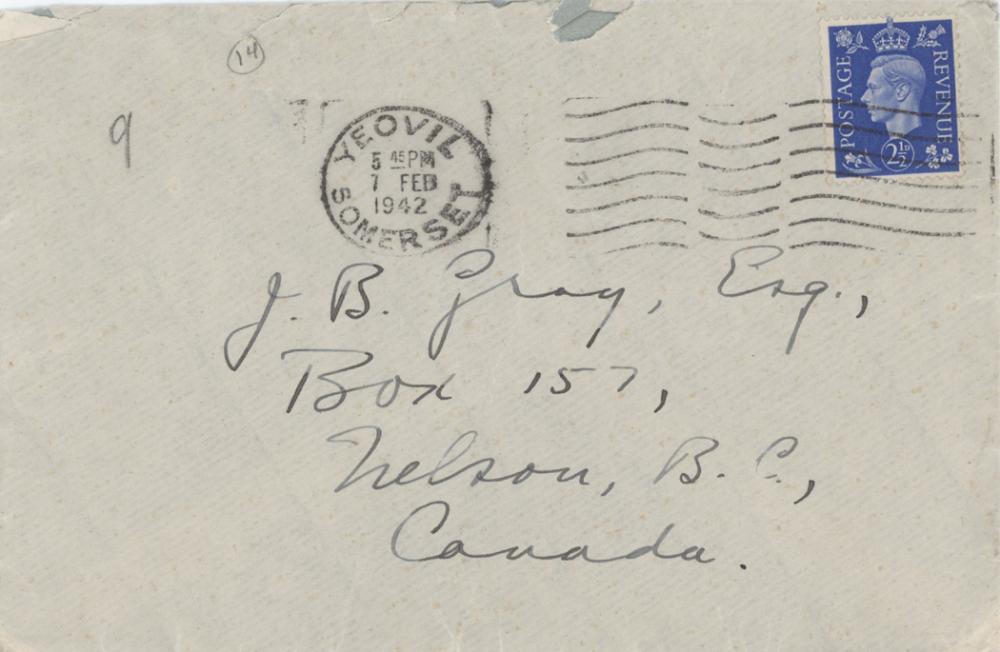 14
9
YEOVIL
5 45 PM
7 FEB
1942
SOMERSET
POSTAGE
REVENUE
2½D
J. B. Gray, Esq.,
Box 157,
Nelson, B. C.,
Canada.